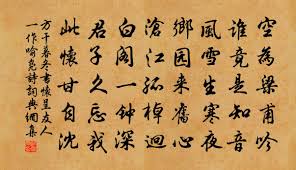 空為梁甫吟
誰竟是知音
風雪生寒夜
鄉园来舊心
滄江孤棹迥
白閣一鐘深
君子久忘我
此懷甘自沈
方干暮冬書懷呈友人
一作喻鳧詩詞典網集